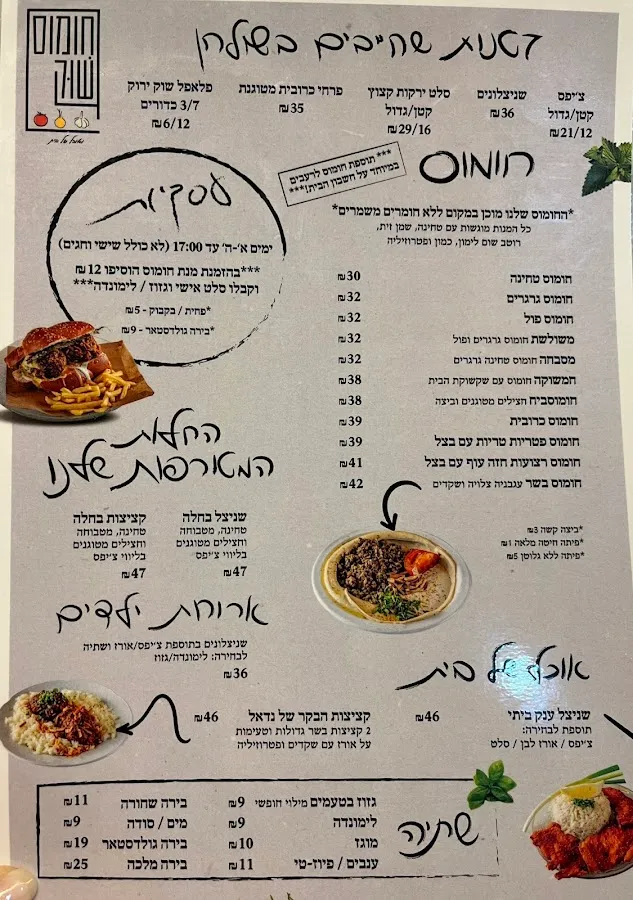 חומוס
שוק
אוכל של בית
קטנות שחייבים בשולחן
צ׳יפס
קטן/גדול
₪21/12
שניצלונים
₪36
סלט ירקות קצוץ
קטן/גדול
₪29/16
פרחי כרובית מטוגנת
₪35
פלאפל שוק ירוק
3/7 כדורים
₪6/12
חומוס
*** תוספת חומוס לרעבים
במיוחד על חשבון הבית!***
*החומוס שלנו מוכן במקום ללא חומרים משמרים*
כל המנות מוגשות עם טחינה, שמן זית,
רוטב שום לימון, כמון ופטרוזיליה
חומוס טחינה ₪30
חומוס גרגרים ₪32
חומוס פול ₪32
משולשת חומוס גרגרים ופול ₪32
מסבחה חומוס טחינה גרגרים ₪32
חמשוקה חומוס עם שקשוקת הבית ₪38
חומוסביח חצילים מטוגנים וביצה ₪38
חומוס כרובית ₪39
חומוס פטריות טריות עם בצל ₪39
חומוס רצועות חזה עוף עם בצל ₪41
חומוס בשר עגבניה צלויה ושקדים ₪42
*ביצה קשה ₪3
*פיתה חיטה מלאה ₪1
*פיתה ללא גלוטן ₪5
עסקיות
ימים א׳-ה׳ עד 17:00 (לא כולל שישי וחגים)
***בהזמנת מנת חומוס הוסיפו ₪12
וקבלו סלט אישי וגזוז / לימונדה***
*פחית / בקבוק - ₪5
*בירה גולדסטאר - ₪9
החלות
המטורפות שלנו
שניצל בחלה
טחינה, מטבוחה
וחצילים מטוגנים
בליווי צ׳יפס
₪47
קציצות בחלה
טחינה, מטבוחה
וחצילים מטוגנים
בליווי צ׳יפס
₪47
ארוחת ילדים
שניצלונים בתוספת צ׳יפס/אורז ושתיה
לבחירה: לימונדה/גזוז
₪36
אוכל של בית
שניצל ענק ביתי ₪46
תוספת לבחירה:
צ׳יפס / אורז לבן / סלט
קציצות הבקר של נדאל ₪46
2 קציצות בשר גדולות וטעימות
על אורז עם שקדים ופטרוזיליה
שתיה
גזוז בטעמים מילוי חופשי ₪9
לימונדה ₪9
מוגז ₪10
ענבים / פיוז-טי ₪11
בירה שחורה ₪11
מים / סודה ₪9
בירה גולדסטאר ₪19
בירה מלכה ₪25